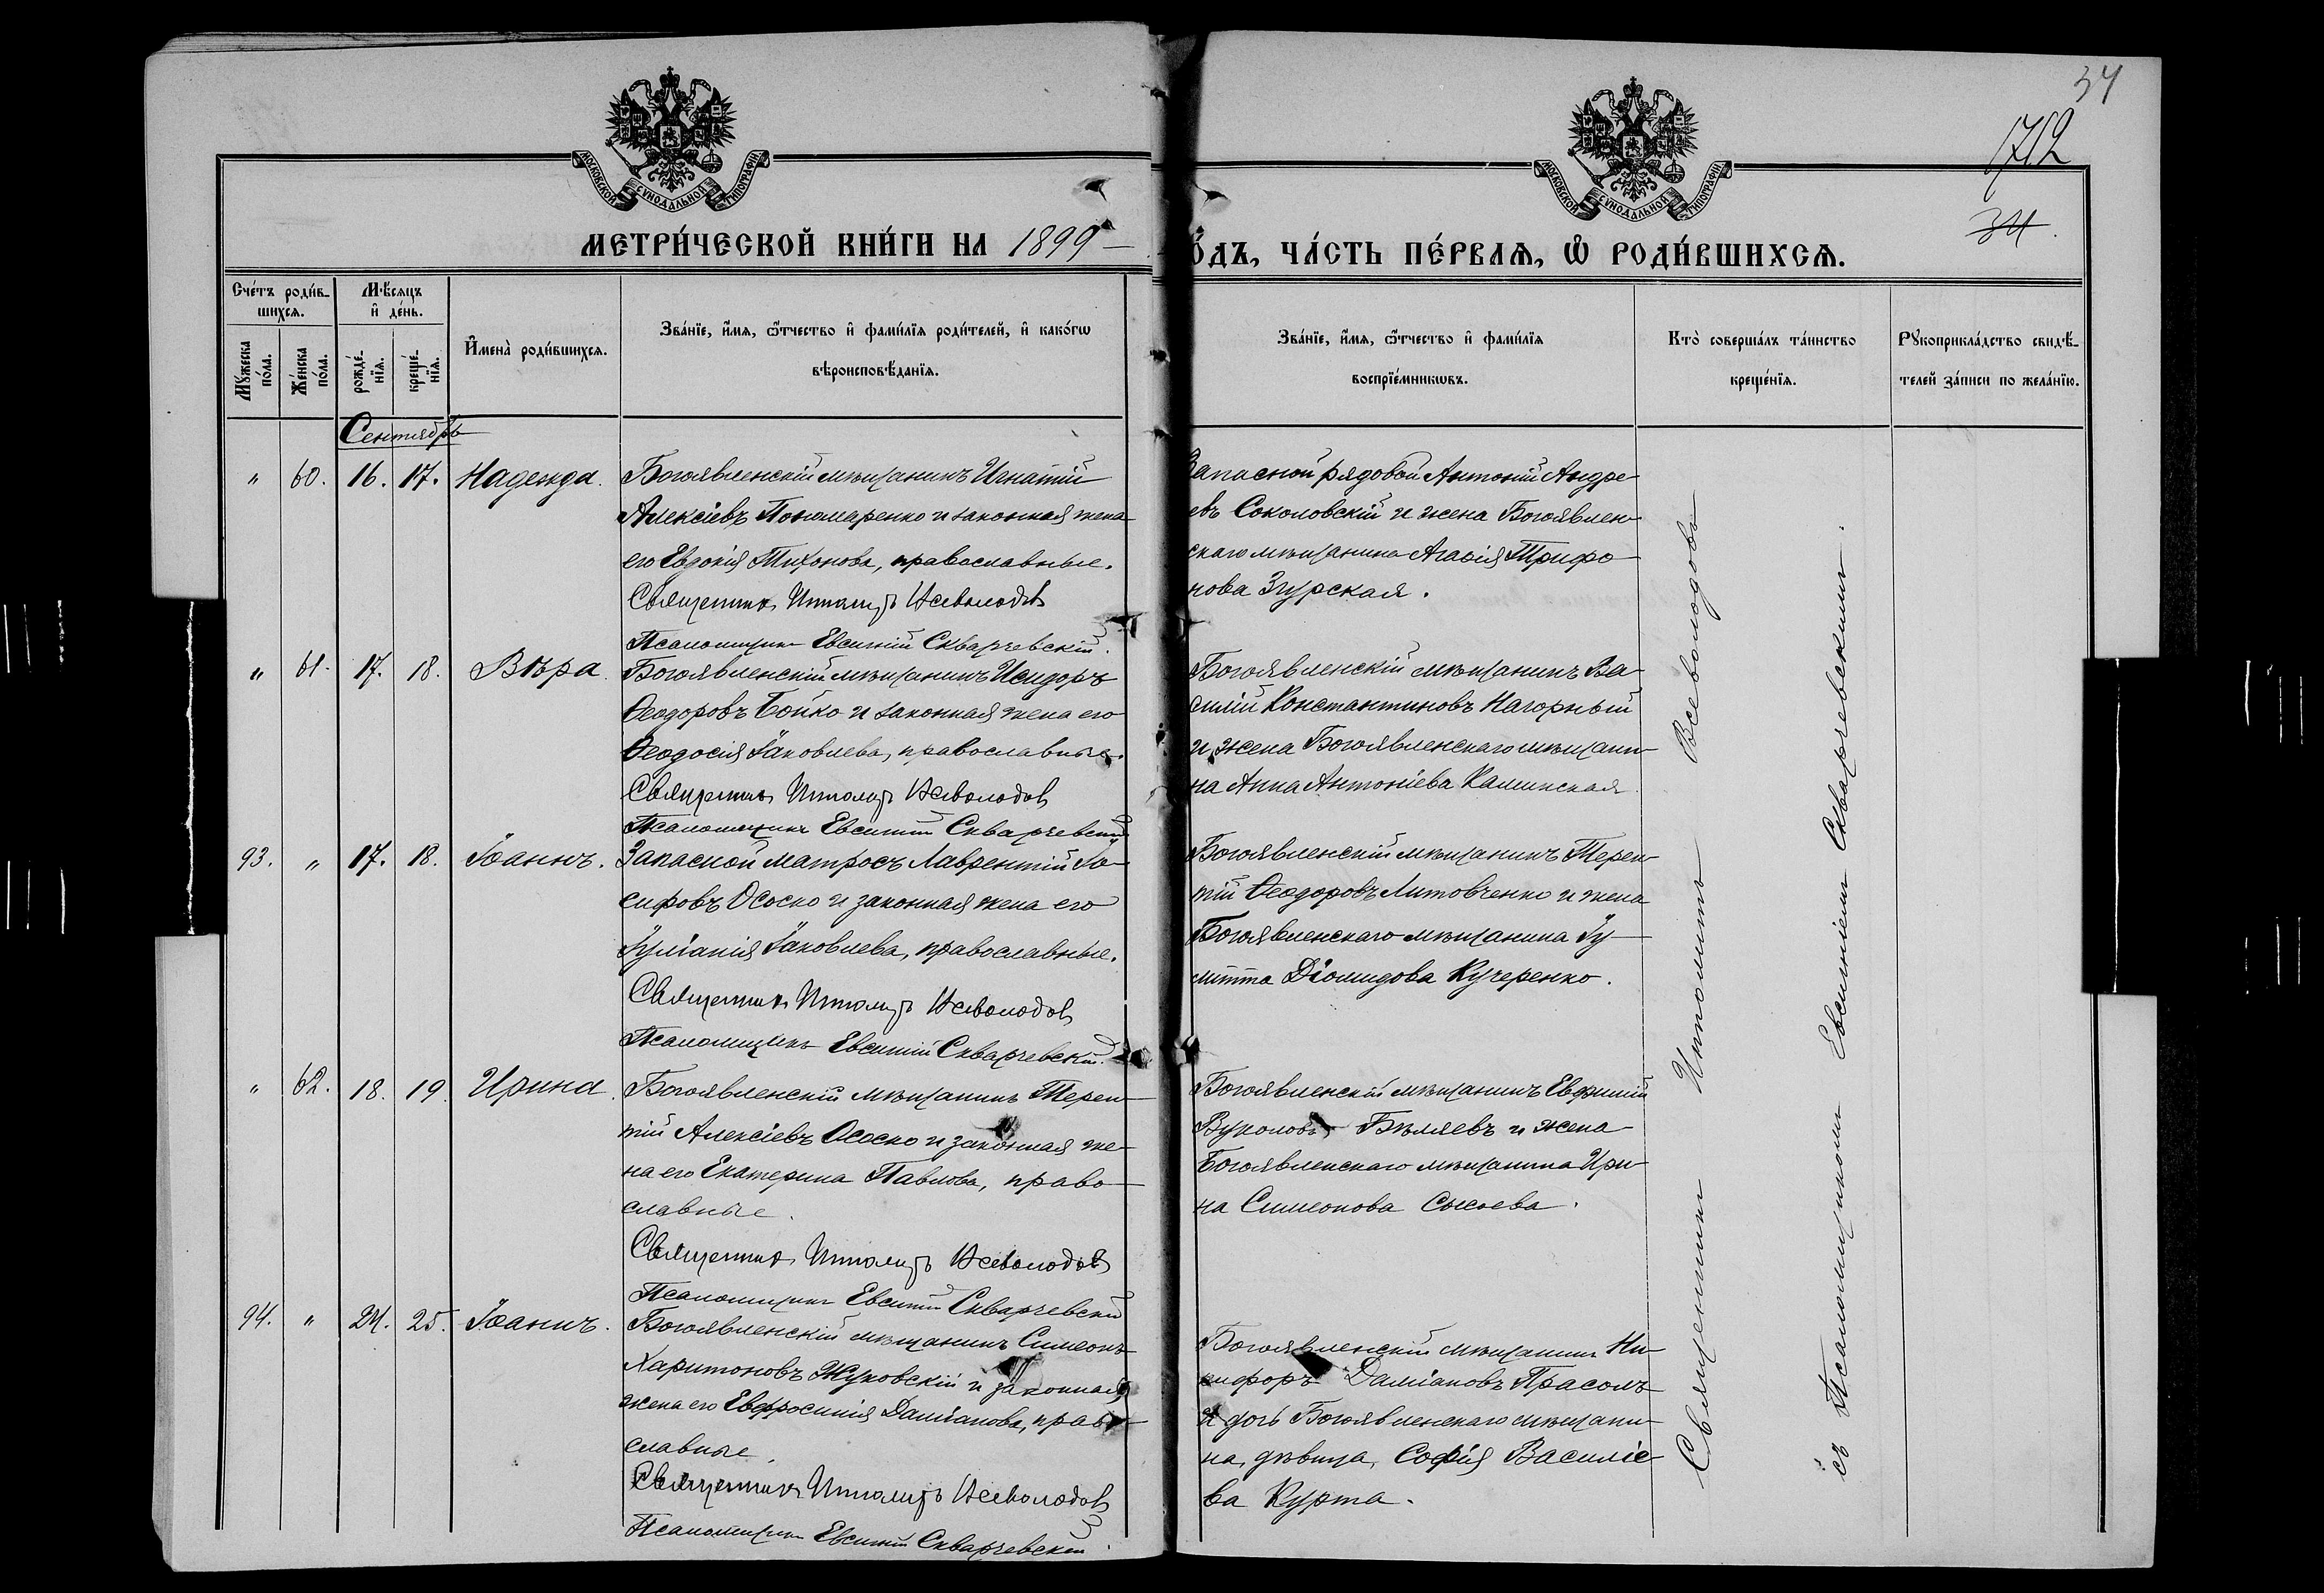 34
712
34.
МОСКОВСКОЙ СѴНОДАЛЬНОЙ ТИПОГРАФІИ
МОСКОВСКОЙ СѴНОДАЛЬНОЙ ТИПОГРАФІИ
МЕТРИ́ЧЕСКОЙ КНИ́ГИ НА 1899
О́ДЪ, ЧА́СТЬ ПЕ́РВАѦ, Ѡ҆ РОДИ́ВШИХСѦ.
Сче́тъ роди́в-
шихсѧ.
Мꙋ́жеска
по́ла.
Же́нска
по́ла.
Мѣ́сѧцъ
и҆ де́нь.
рожде́-
нїѧ.
креще́-
нїѧ.
И҆мена̀ роди́вшихсѧ.
Зва́нїе, и҆́мѧ, ѻ҆́тчество и҆ фами́лїѧ роди́телей, и҆ како́гѡ
вѣроисповѣ́данїѧ.
Зва́нїе, и҆́мѧ, ѻ҆́тчество и҆ фами́лїѧ
воспрїе́мникѡвъ.
Кто̀ соверша́лъ та́инство
креще́нїѧ.
Рꙋкоприкла́дство свидѣ́-
телей за́писи по жела́нїю.
Сентябрь
" 60. 16. 17. Надежда.
Богоявленскій мѣщанинъ Игнатій
Алексіевъ Пономаренко и законная жена
его Евдокія Тихонова, православные.
Священникъ Ипполитъ Всеволодовъ
Псаломщикъ Евсигній Скварчевскій.
Запасной рядовой Антоній Андре-
евъ Соколовскій и жена Богоявлен-
скаго мѣщанина Агафія Трифо-
нова Згурская.
" 61. 17. 18. Вѣра.
Богоявленскій мѣщанинъ Исидоръ
Ѳеодоровъ Бойко и законная жена его
Ѳеодосія Іаковлева, православные.
Священникъ Ипполитъ Всеволодовъ
Псаломщикъ Евсигній Скварчевскій
Богоявленскій мѣщанинъ Ва-
силій Константиновъ Нагорный
и жена Богоявленскаго мѣщани-
на Анна Антоніева Калинская
93. " 17. 18. Іоаннъ.
Запасной матросъ Лаврентій Іо-
сифовъ Ососко и законная жена его
Іуліанія Іаковлева, православные.
Священникъ Ипполитъ Всеволодовъ
Псаломщикъ Евсигній Скварчевскій.
Богоявленскій мѣщанинъ Терен-
тій Ѳеодоровъ Литовченко и жена
Богоявленскаго мѣщанина Іу-
литта Діомидова Кучеренко.
" 62. 18. 19. Ирина.
Богоявленскій мѣщанинъ Терен-
тій Алексіевъ Ососко и законная же-
на его Екатерина Павлова, право-
славные.
Священникъ Ипполитъ Всеволодовъ
Псаломщикъ Евсигній Скварчевскій
Богоявленскій мѣщанинъ Евфимій
Вуколовъ Бѣляевъ и жена
Богоявленскаго мѣщанина Ири-
на Симеонова Сысоева.
94. " 24. 25. Іоаннъ.
Богоявленскій мѣщанинъ Симеонъ
Харитоновъ Жуковскій и законная
жена его Евфросинія Даміанова, право-
славные.
Священникъ Ипполитъ Всеволодовъ
Псаломщикъ Евсигній Скварчевскій.
Богоявленскій мѣщанинъ Ни-
кифоръ Даміановъ Прасолъ
и дочь Богоявленскаго мѣщани-
на, дѣвица, Софія Василіе-
ва Курта.
Священникъ Ипполитъ Всеволодовъ
съ Псаломщикомъ Евсигніемъ Скварчевскимъ.